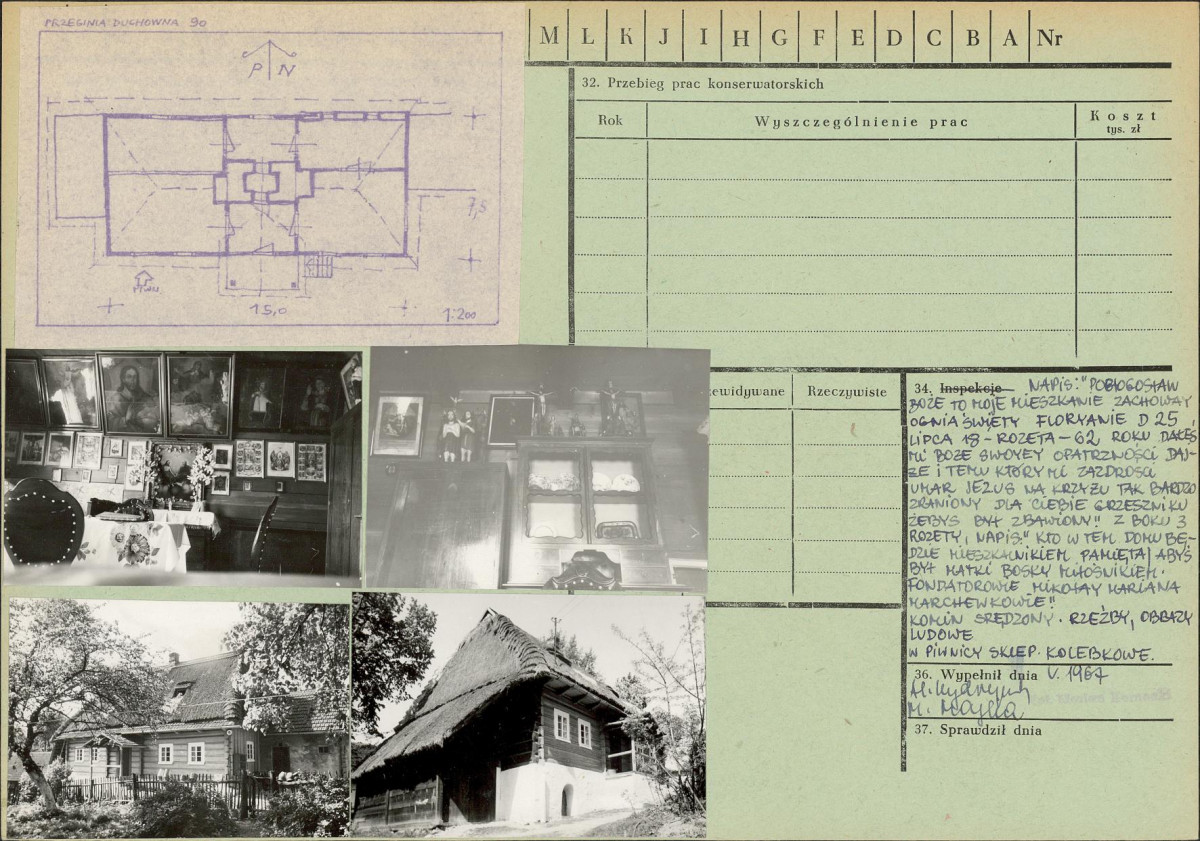 PRZEGINIA DUCHOWNA 90
P N
7,5
PIWN.
15,0
1:200
M Ł K J I H G F E D C B A Nr
32. Przebieg prac konserwatorskich
Rok
Wyszczególnienie prac
Koszt
tys. zł
ewidywane
Rzeczywiste
34. Inspekcje NAPIS: "POBŁOGOSŁAW
BOŻE TO MOJE MIESZKANIE ZACHOWAY
OGNIA ŚWIĘTY FLORYANIE D 25
LIPCA 18-ROZETA-62 ROKU DAŁEŚ
MI BOŻE SWOYEY OPATRZNOŚCI DAJ-
ŻE I TEMU KTÓRY MI ZAZDROŚCI
UMAR JEZUS NA KRZYŻU TAK BARDZO
ZRANIONY DLA CIEBIE GRZESZNIKU
ŻEBYŚ BYŁ ZBAWIONY" Z BOKU 3
ROZETY, NAPIS:" KTO W TEM DOMU BĘ-
DZIE MIESZKALNIKIEM PAMIĘTAJ ABYŚ
BYŁ MATKI BOSKY MIŁOŚNIKIEM.
FONDATOROWIE MIKOŁAY MARIANA
MARCHEWKOWIE"
KOMIN SRĘDZONY. RZEŹBY, OBRAZY
LUDOWE
W PIWNICY SKLEP. KOLEBKOWE.
36. Wypełnił dnia V. 1967
37. Sprawdził dnia